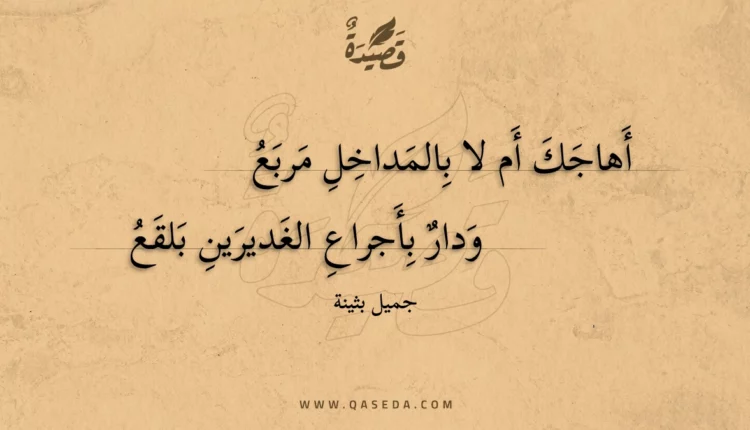 قَصِيدَةٌ
أَهاجَكَ أَم لا بِالمَداخِلِ مَربَعُ
وَدارٌ بِأَجراعِ الغَديرَينِ بَلقَعُ
جميل بثينة
WWW.QASEDA.COM